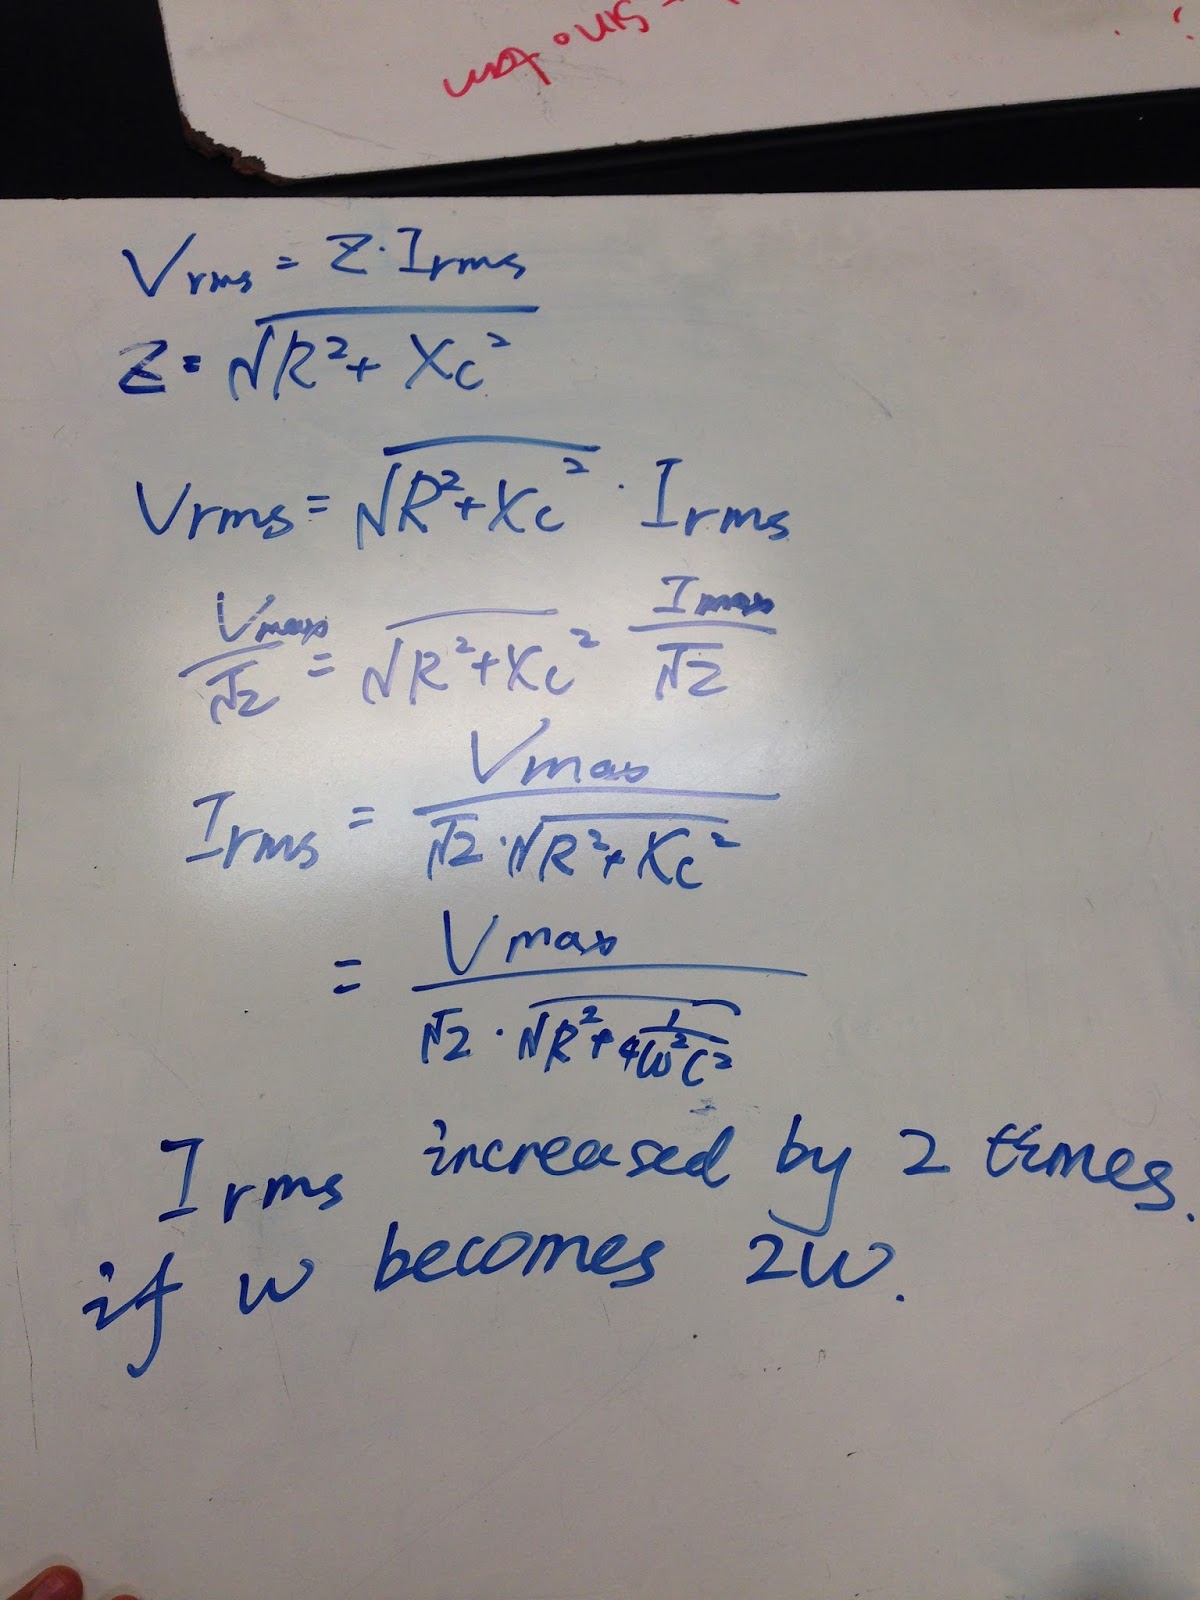 Vrms = Z · Irms
Z = √R² + Xc²
Vrms = √R² + Xc² · Irms
Vmax/√2 = √R² + Xc² Imax/√2
Irms = Vmax/√2 · √R² + Xc²
= Vmax/√2 · √R² + 1/4W²C²
Irms increased by 2 times.
if w becomes 2W.